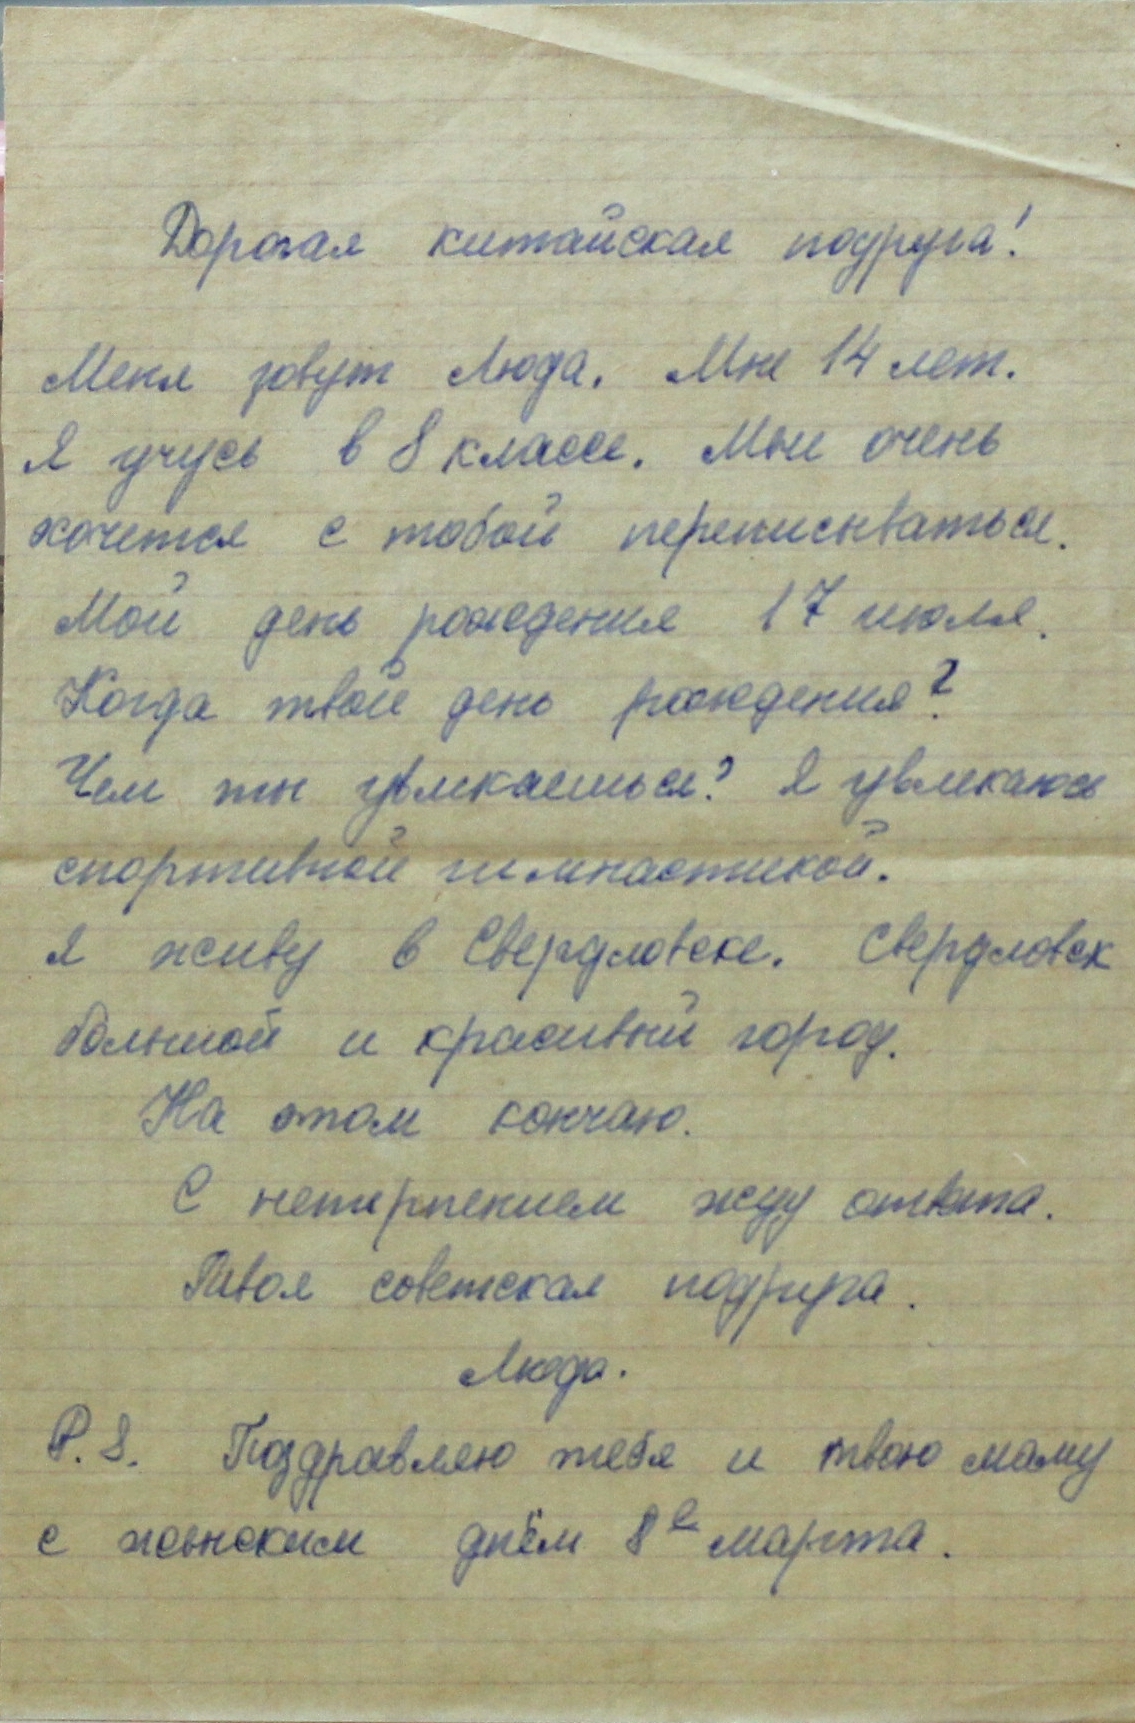 Дорогая китайская подруга!
Меня зовут Люда. Мне 14 лет.
Я учусь в 8 классе. Мне очень
хочется с тобой переписываться.
Мой день рождения 17 июля.
Когда твой день рождения?
Чем ты увлекаешься? Я увлекаюсь
спортивной гимнастикой.
Я живу в Свердловске. Свердловск
большой и красивый город.
На этом кончаю.
С нетерпением жду ответа.
Твоя советская подруга.
Люда.
P.S. Поздравляю тебя и твою маму
с женским днём 8е марта.